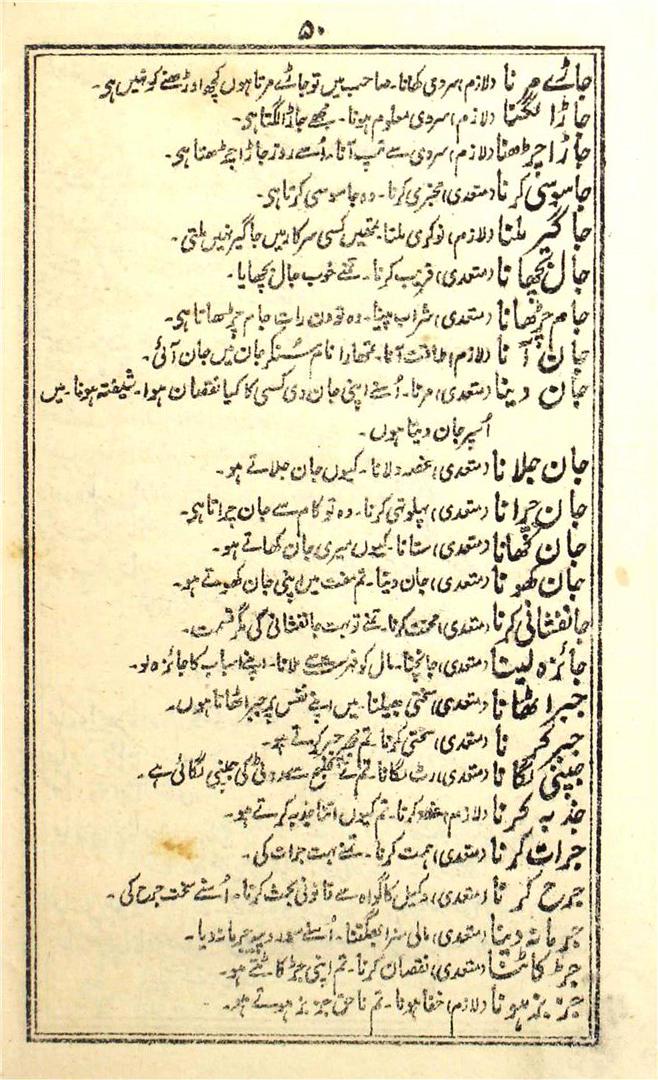 ۵۰
جاڑے مرنا (لازم) سردی کھانا۔ صاحب میں تو جاڑے مرتا ہوں کچھ اوڑھنے کو نہیں ہی۔
جاڑا لگنا (لازم) سردی معلوم ہونا۔ مجھے جاڑا لگتا ہی۔
جاڑا چڑھنا (لازم) سردی سے تپ آنا۔ اُسے روز جاڑا چڑھتا ہی۔
جاسوسی کرنا (متعدی) مخبری کرنا۔ وہ جاسوسی کرتا ہی۔
جاگیر ملنا (لازم) نوکری ملنا۔ تمھیں کسی سرکار میں جاگیر نہیں ملتی۔
جال بچھانا (متعدی) فریب کرنا۔ تمنے خوب جال بچھایا۔
جام چڑھانا (متعدی) شراب پینا۔ وہ تو دن رات جام چڑھاتا ہی۔
جان آنا (لازم) طاقت آنا۔ تمھارا نام سُنکر جان میں جان آئی۔
جان دینا (متعدی) مرنا۔ اُسنے اپنی جان دی کسی کا کیا نقصان ہوا۔ شیفتہ ہونا۔ میں
اُسپر جان دیتا ہوں۔
جان جلانا (متعدی) غصہ دلانا۔ کیوں جان جلاتے ہو۔
جان چرانا (متعدی) پہلوتہی کرنا۔ وہ تو کام سے جان چراتا ہی۔
جان کھانا (متعدی) ستانا۔ کیوں میری جان کھاتے ہو۔
جان کھونا (متعدی) جان دینا۔ تم مفت میں اپنی جان کھوتے ہو۔
جانفشانی کرنا (متعدی) محنت کرنا۔ تمنے تو بہت جانفشانی کی مگر قسمت۔
جائزہ لینا (متعدی) جانچنا۔ مال کو فہرست سے ملانا۔ اپنے اسباب کا جائزہ لو۔
جبر اٹھانا (متعدی) سختی جھیلنا۔ میں اپنے نفس پر جبر اٹھاتا ہوں۔
جبر کرنا (متعدی) سختی کرنا۔ تم مجھپر جبر کرتے ہو۔
جپنی لگانا (متعدی) رٹ لگانا۔ تم نے صبح سے روٹی کی جپنی لگائی ہے۔
جذبہ کرنا (لازم) غصہ کرنا۔ تم کیوں اتنا جذبہ کرتے ہو۔
جرات کرنا (متعدی) ہمت کرنا۔ تمنے بہت جرات کی۔
جرح کرنا (متعدی) وکیل کا گواہ سے قانونی بحث کرنا۔ اُسنے سخت جرح کی۔
جرمانہ دینا (متعدی) مالی سزا بھگتنا۔ اُسنے سو روپیہ جرمانہ دیا۔
جڑ کاٹنا (متعدی) نقصان کرنا۔ تم اپنی جڑ کاٹتے ہو۔
جز بز ہونا (لازم) خفا ہونا۔ تم ناحق جز بز ہوتے ہو۔